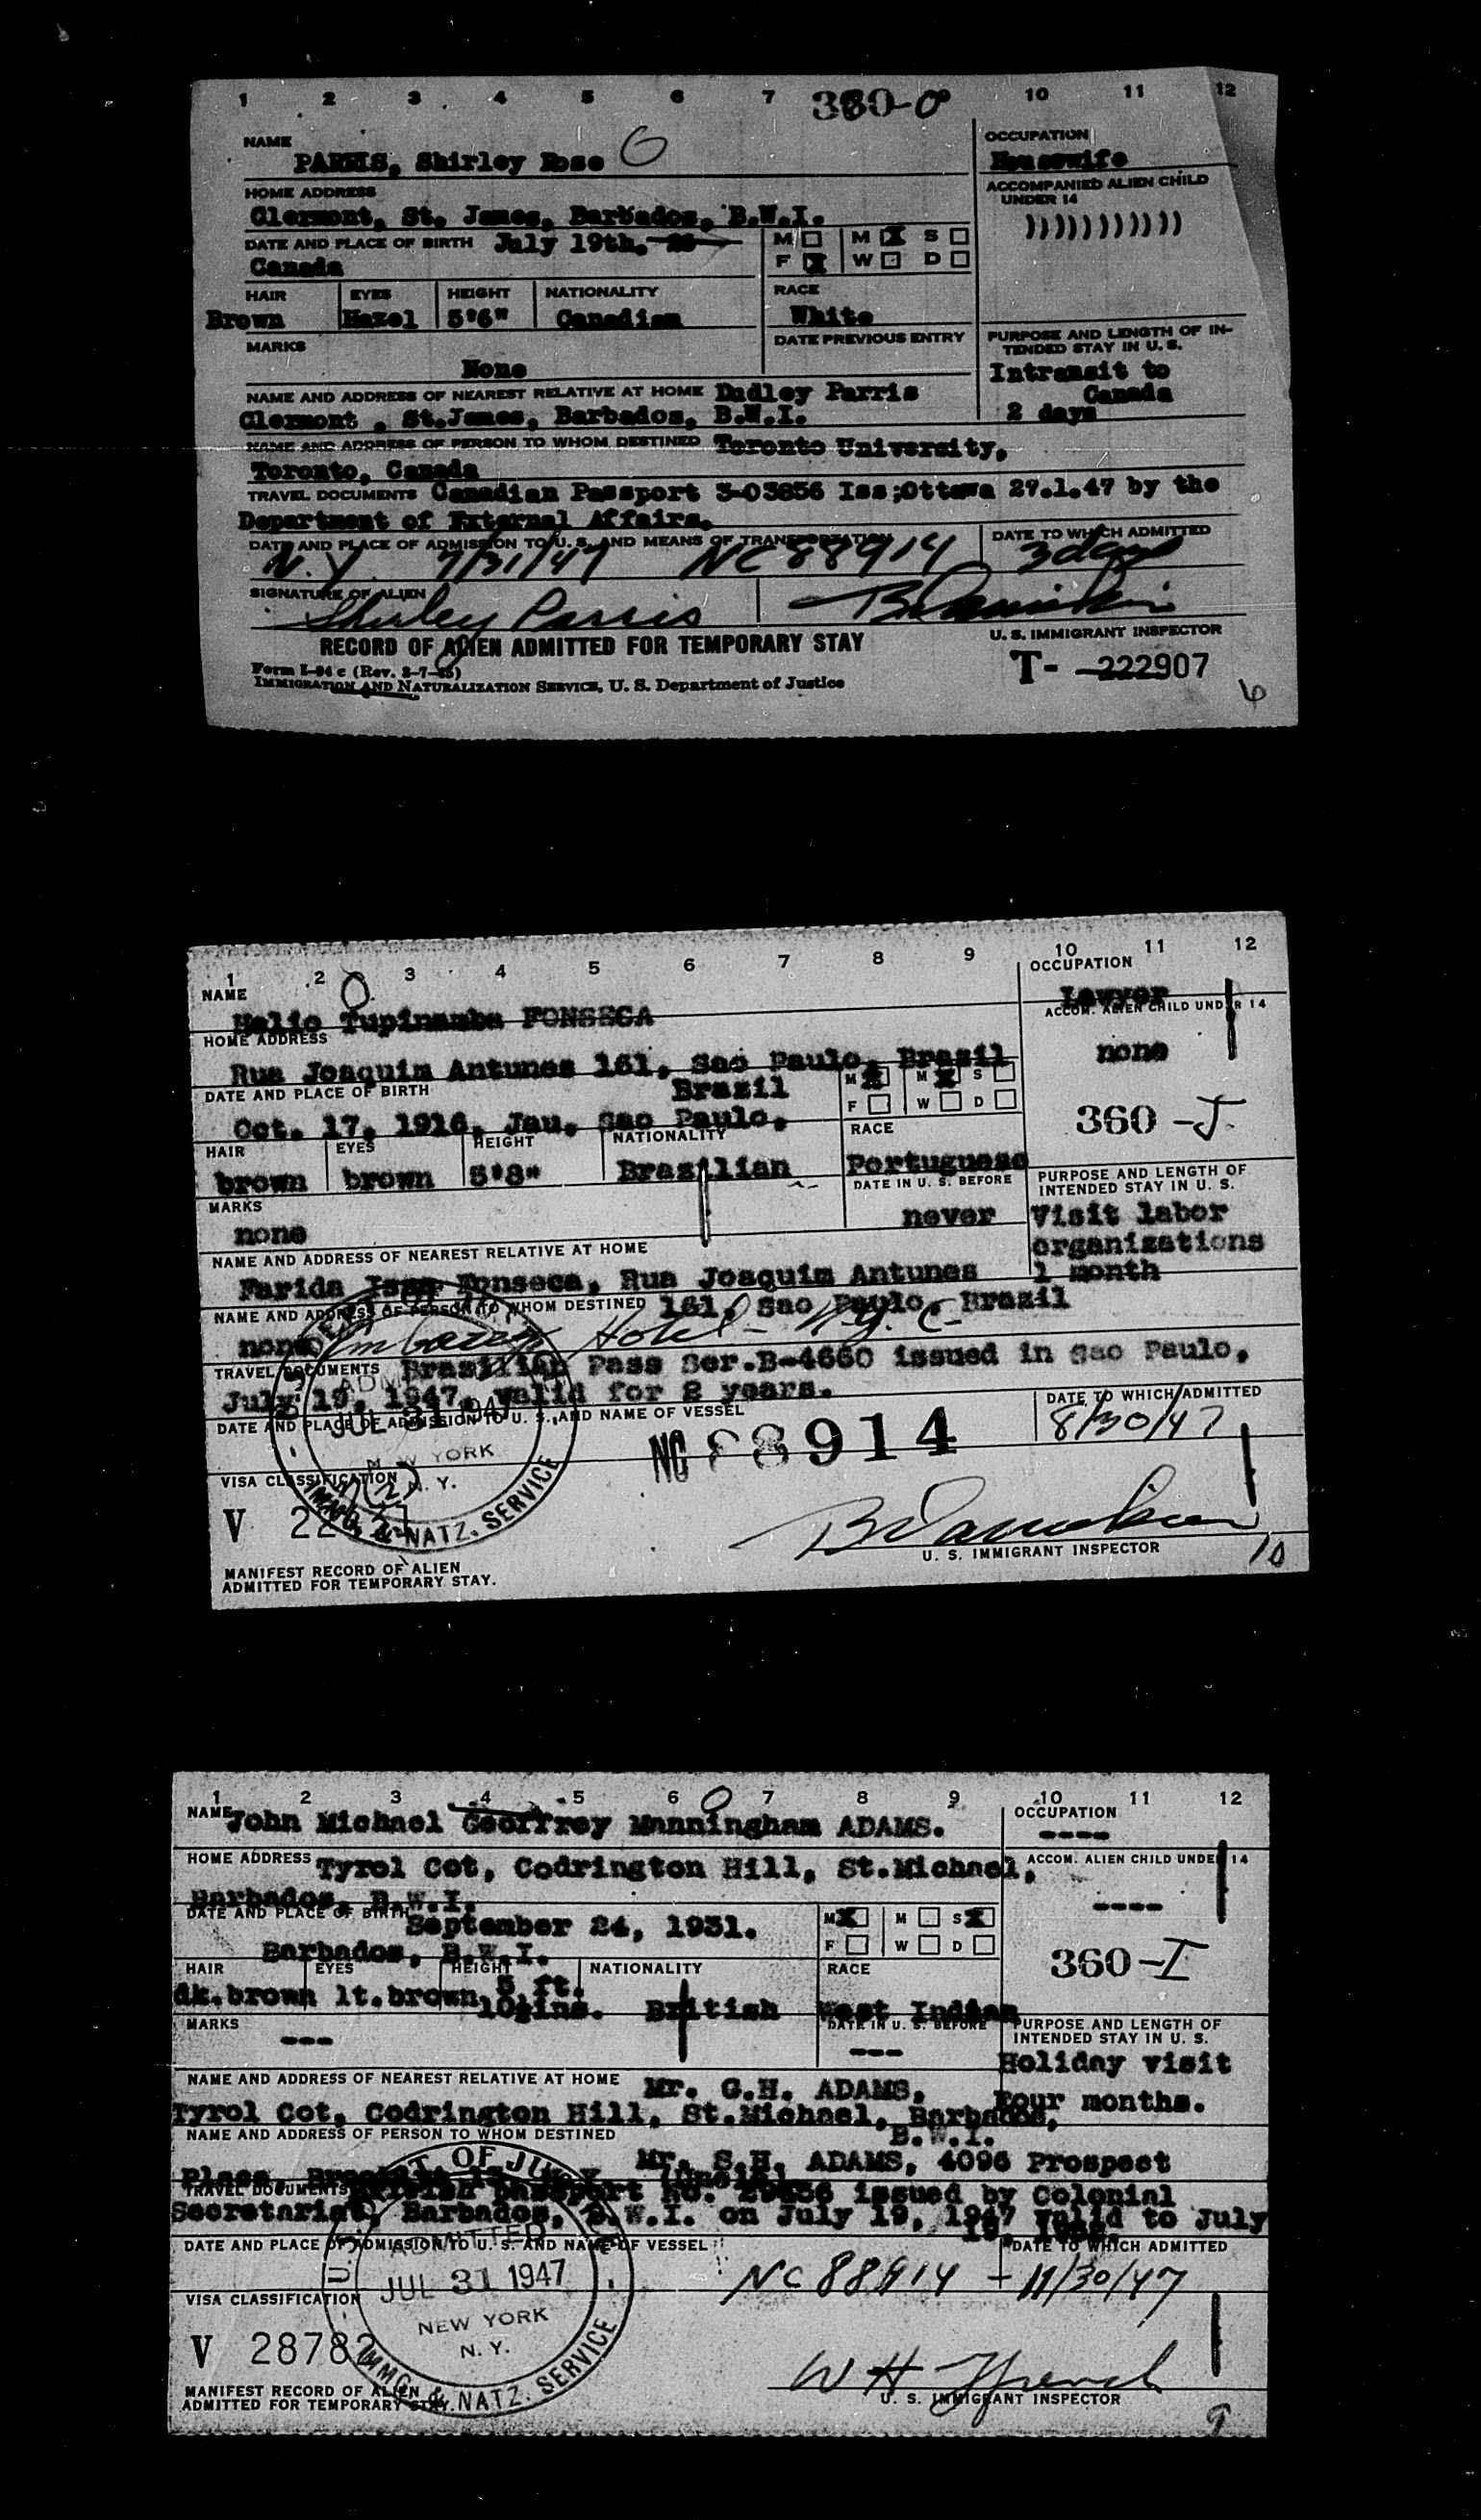 1 2 3 4 5 6 7 360-O 10 11 12
NAME
PARRIS, Shirley Rose
OCCUPATION
Housewife
HOME ADDRESS
Clermont, St. James, Barbados, B.W.I.
ACCOMPANIED ALIEN CHILD
UNDER 14
))))))))))))
DATE AND PLACE OF BIRTH July 19th.
Canada
M M X S
F X W D
HAIR EYES HEIGHT NATIONALITY RACE
Brown Hazel 5'6" Canadian White
MARKS
None
DATE PREVIOUS ENTRY
PURPOSE AND LENGTH OF IN-
TENDED STAY IN U. S.
Intransit to
Canada
2 days
NAME AND ADDRESS OF NEAREST RELATIVE AT HOME Dudley Parris
Clermont , St.James, Barbados, B.W.I.
NAME AND ADDRESS OF PERSON TO WHOM DESTINED Toronto University,
Toronto, Canada
TRAVEL DOCUMENTS Canadian Passport 3-03856 Iss;Ottawa 27.1.47 by the
Department of External Affairs.
DATE AND PLACE OF ADMISSION TO U. S. AND MEANS OF TRANSPORTATION
N.Y. 7/31/47 NC 88914
DATE TO WHICH ADMITTED
3 days
SIGNATURE OF ALIEN
Shirley Parris
U. S. IMMIGRANT INSPECTOR
RECORD OF ALIEN ADMITTED FOR TEMPORARY STAY
Form I-94 c
IMMIGRATION AND NATURALIZATION SERVICE, U. S. Department of Justice
T- 222907
6
1 2 3 4 5 6 7 8 9 10 11 12
NAME
Helio Tupinamba FONSECA
OCCUPATION
Lawyer
HOME ADDRESS
Rua Joaquim Antunes 161, Sao Paulo, Brasil
ACCOM. ALIEN CHILD UNDER 14
none
DATE AND PLACE OF BIRTH Brazil
Oct. 17, 1916, Jau, Sao Paulo,
M X M X S
F W D
360 -J
HAIR EYES HEIGHT NATIONALITY RACE
brown brown 5'8" Brasilian Portuguese
MARKS
none
DATE IN U. S. BEFORE
never
PURPOSE AND LENGTH OF
INTENDED STAY IN U. S.
Visit labor
organizations
1 month
NAME AND ADDRESS OF NEAREST RELATIVE AT HOME
Farida Fonseca, Rua Joaquim Antunes
NAME AND ADDRESS OF PERSON TO WHOM DESTINED 161, Sao Paulo, Brazil
none Hotel - N.Y.C.
TRAVEL DOCUMENTS Brasilian Pass Ser.B-4660 issued in Sao Paulo,
July 19, 1947, valid for 2 years.
DATE AND PLACE OF ADMISSION TO U. S., AND NAME OF VESSEL
ADMITTED
JUL 31 1947
NEW YORK
N. Y.
IMMG. & NATZ. SERVICE
NC 88914
DATE TO WHICH ADMITTED
8/30/47
VISA CLASSIFICATION
V
U. S. IMMIGRANT INSPECTOR
10
MANIFEST RECORD OF ALIEN
ADMITTED FOR TEMPORARY STAY.
1 2 3 4 5 6 7 8 9 10 11 12
NAME John Michael Geoffrey Manningham ADAMS.
OCCUPATION
----
HOME ADDRESS Tyrol Cot, Codrington Hill, St.Michael,
Barbados, B.W.I.
ACCOM. ALIEN CHILD UNDER 14
----
DATE AND PLACE OF BIRTH September 24, 1931.
Barbados, B.W.I.
M X M S X
F W D
360-I
HAIR EYES HEIGHT NATIONALITY RACE
dk.brown lt.brown 5 ft. 10½ins. British West Indian
MARKS
---
DATE IN U. S. BEFORE
---
PURPOSE AND LENGTH OF
INTENDED STAY IN U. S.
Holiday visit
Four months.
NAME AND ADDRESS OF NEAREST RELATIVE AT HOME Mr. G.H. ADAMS,
Tyrol Cot, Codrington Hill, St.Michael, Barbados,
B.W.I.
NAME AND ADDRESS OF PERSON TO WHOM DESTINED
Mr. S.H. ADAMS, 4096 Prospect
Place,
TRAVEL DOCUMENTS British passport no. issued by Colonial
Secretariat, Barbados, B.W.I. on July 19, 1947 valid to July
DATE AND PLACE OF ADMISSION TO U. S. AND NAME OF VESSEL
ADMITTED
JUL 31 1947
NEW YORK
N. Y.
IMMG. & NATZ. SERVICE
NC 88914 - 11/30/47
DATE TO WHICH ADMITTED
VISA CLASSIFICATION
V 28782
W H French
U. S. IMMIGRANT INSPECTOR
MANIFEST RECORD OF ALIEN
ADMITTED FOR TEMPORARY STAY.
9